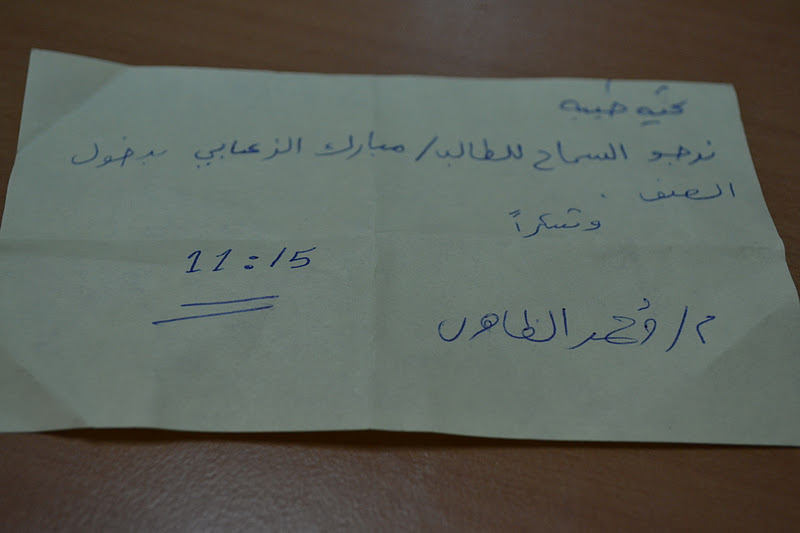 تحية طيبة
نرجو السماح للطالب / مبارك الزعابي بدخول
الصف .
وشكراً
11:15
م/ محمد الظاهري